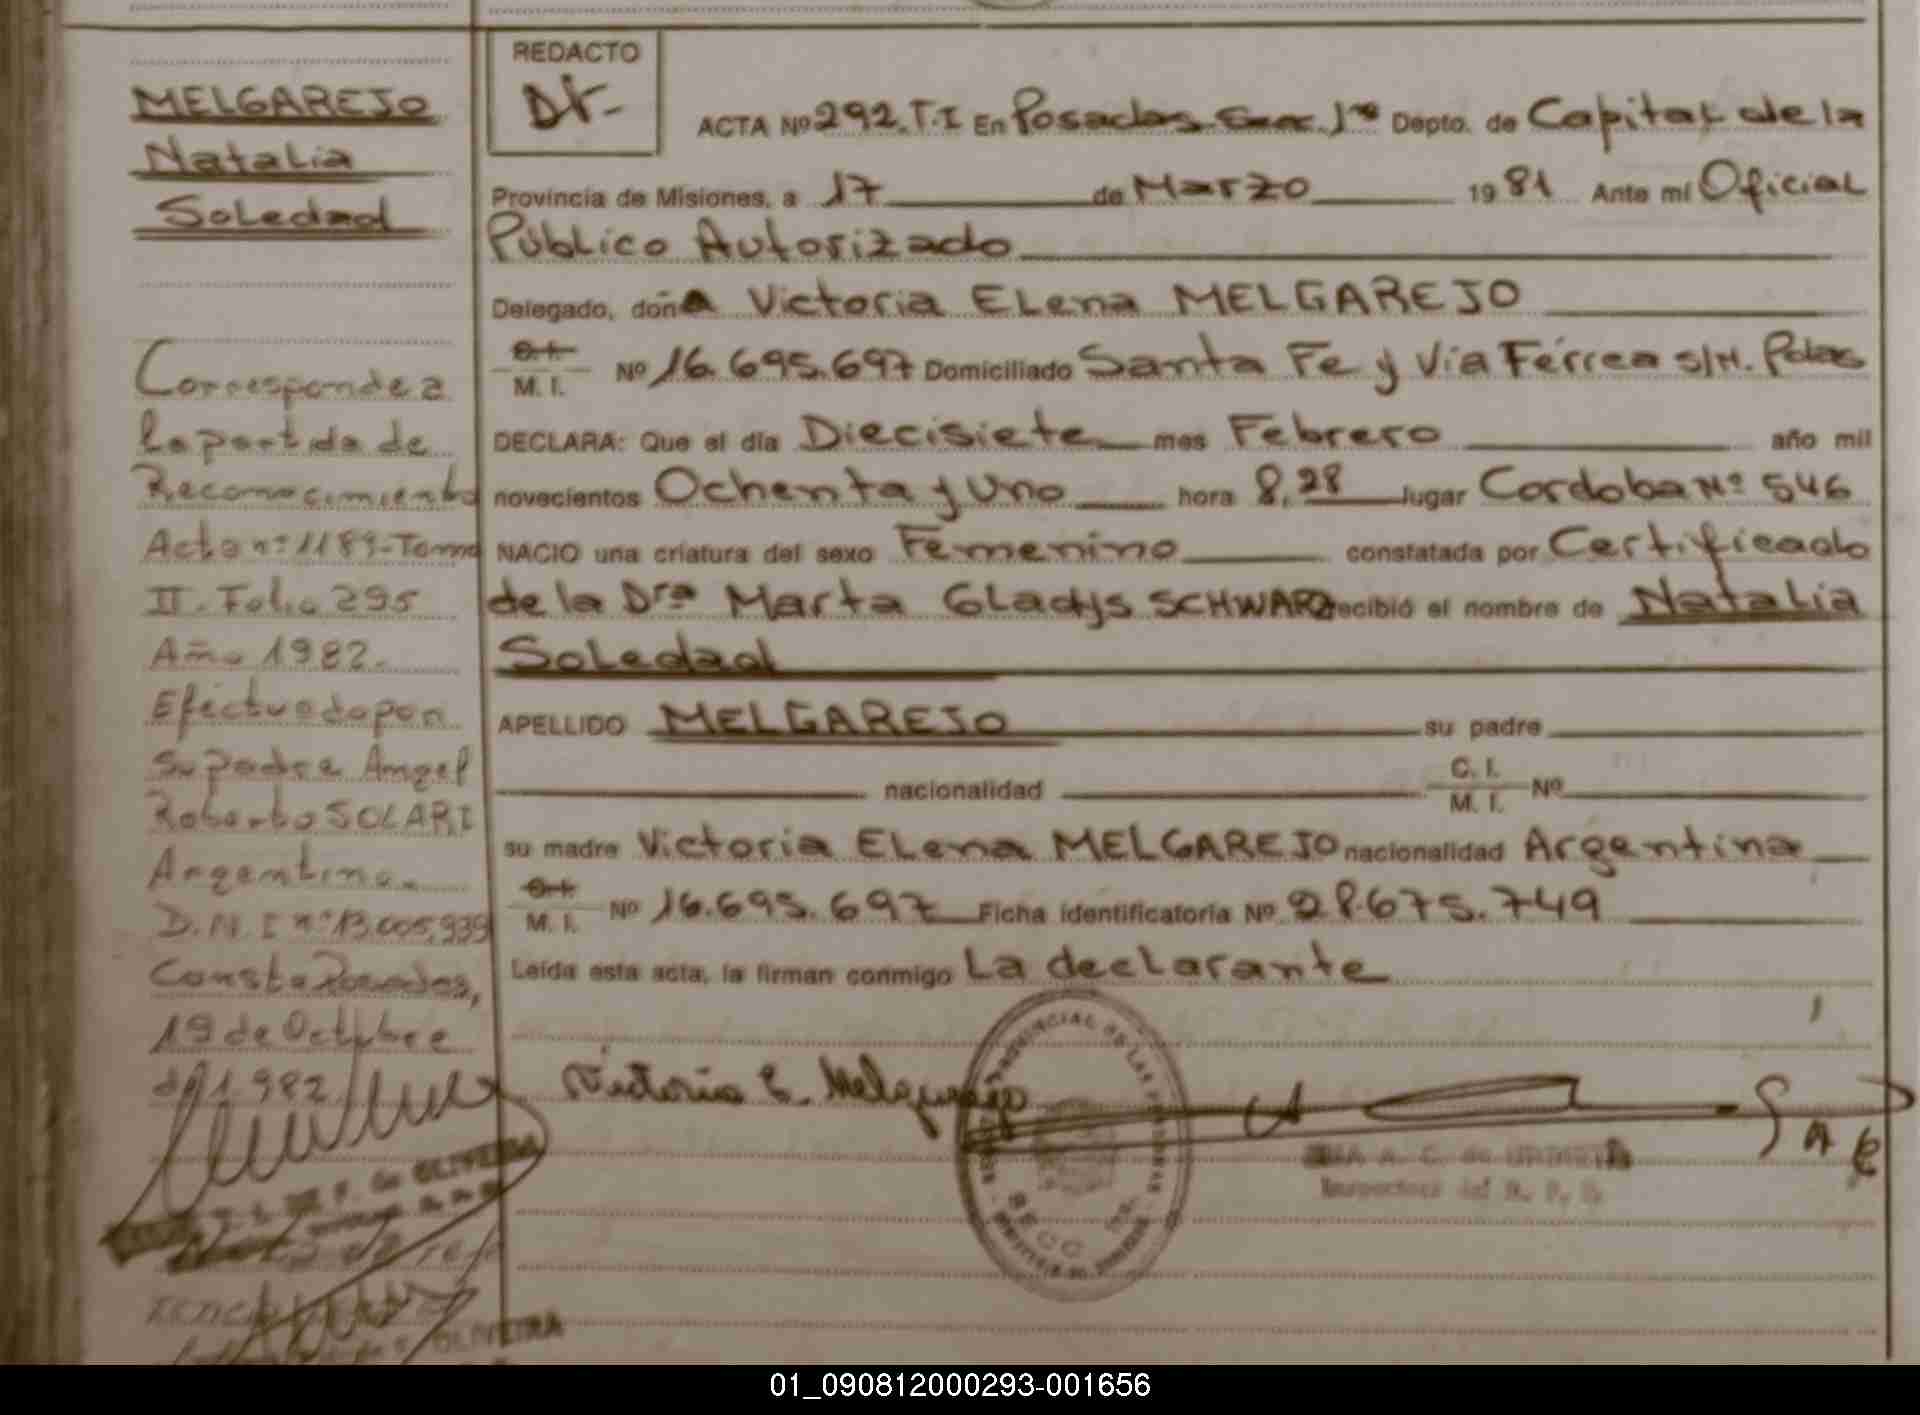 MELGAREJO
Natalia
Soledad
Corresponde a
la partida de
Reconocimiento
Acta nº 1189-Tomo
II. Folio 295
Año 1982.
Efectuado por
su padre Angel
Roberto SOLARI
Argentino.
D.N.I nº 13.005.939
Consta Posadas,
19 de Octubre
de 1.982
de OLIVEIRA
OLIVEIRA
REDACTO
ACTA Nº 292.T.I En Posadas Secc. 1ra Depto. de Capital de la
Provincia de Misiones, a 17 de Marzo 1981 Ante mí Oficial
Público Autorizado
Delegado, doña Victoria Elena MELGAREJO
C.I.
M. I. Nº 16.695.697 Domiciliado Santa Fe y Vía Férrea s/n. Pdas
DECLARA: Que el día Diecisiete mes Febrero año mil
novecientos Ochenta y Uno hora 8,28 lugar Cordoba Nº 546
NACIO una criatura del sexo Femenino constatada por Certificado
de la Dra Marta Gladys SCHWARZ recibió el nombre de Natalia
Soledad
APELLIDO MELGAREJO su padre
nacionalidad C. I.
M. I. Nº
su madre Victoria Elena MELGAREJO nacionalidad Argentina
C.I.
M. I. Nº 16.695.697 Ficha identificatoria Nº 28.675.749
Leída esta acta, la firman conmigo La declarante
Victoria E. Melgarejo
PROVINCIAL DE LAS PERSONAS
A. C. de
Inspectora
01_090812000293-001656